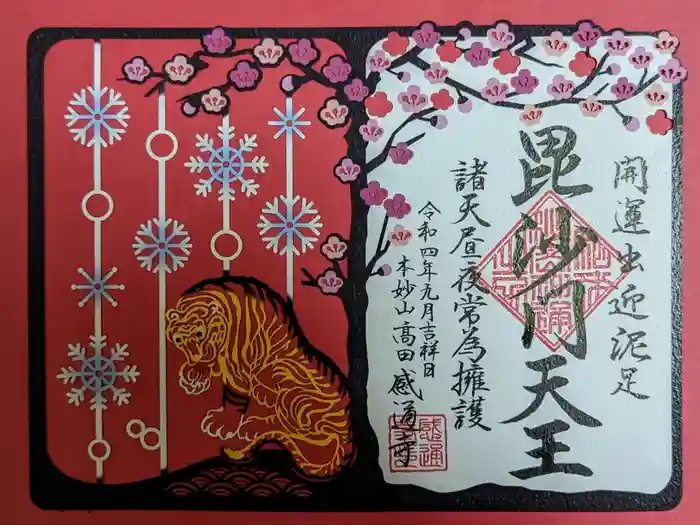 開運出迎泥足
毘沙門天王
諸天昼夜常為擁護
令和四年九月吉祥日
本妙山高田感通寺
感通